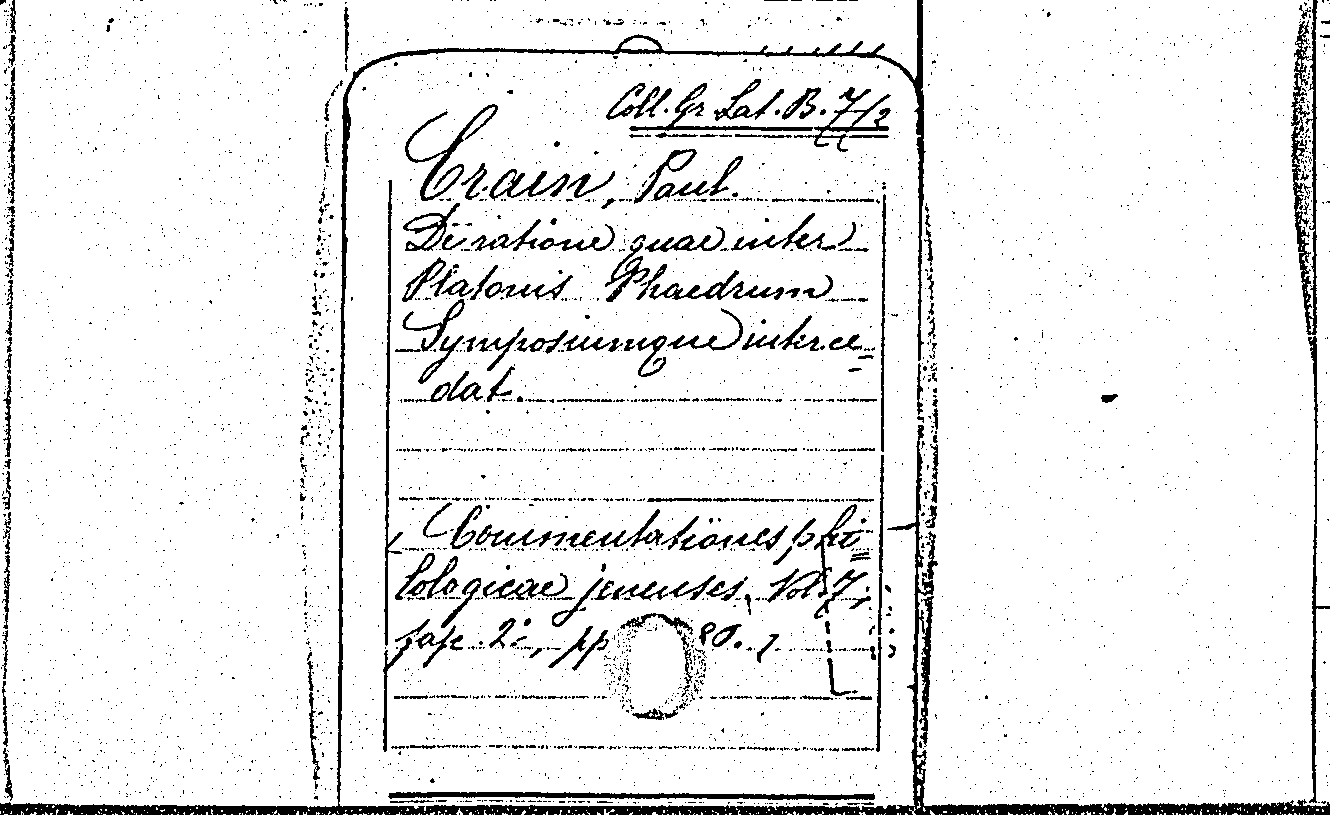 Coll. Gr. Lat. B. 7/2
Crain, Paul.
De ratione quae inter
Platonis Phaedrum
Symposiumque interce=
dat.
Commentationes phi=
lologicae jenenses, Vol. 7,
fasc. 2:, pp 80.